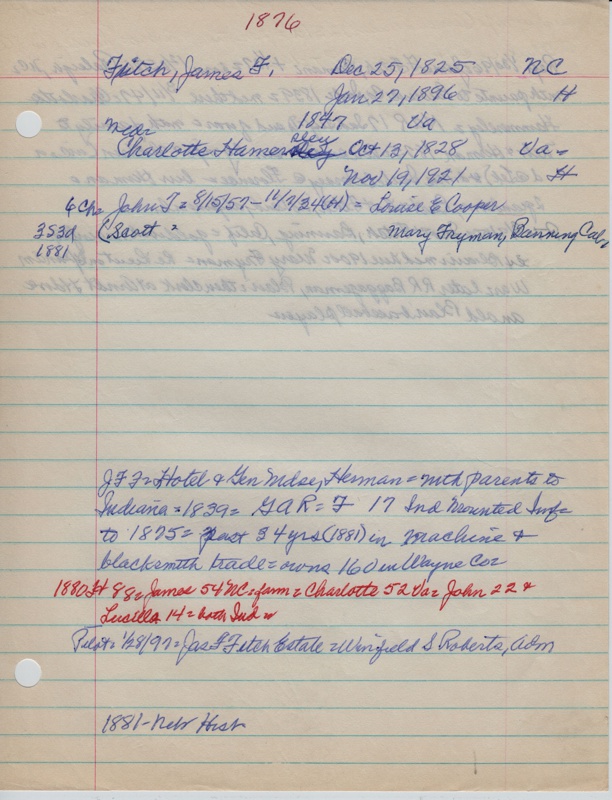 1876
Fitch, James F. Dec 25, 1825 NC
Jan 27, 1896 H
near 1847 Va
sley
Charlotte Hamersley Oct 13, 1828 Va =
Nov 19, 1921 H
6 Ch = John T = 8/15/57 - 11/7/34 (H) = Louise E Cooper
353d (Scott " Mary Fryman, Banning Cal,
1881
JFF = Hotel & Gen Mdse, Herman = with parents to
Indiana = 1839 = GAR = F 17 Ind Mounted Inf =
to 1875 = past 34 yrs (1881) in machine &
blacksmith trade = owns 160 in Wayne Co =
1880 H 88 = James 54 NC = farm = Charlotte 52 Va = John 22 &
Lucilla 14 = both Ind =
Pilot = 1/28/97 = Jas F Fitch Estate = Winfield S Roberts, Adm
1881 - Nebr Hist